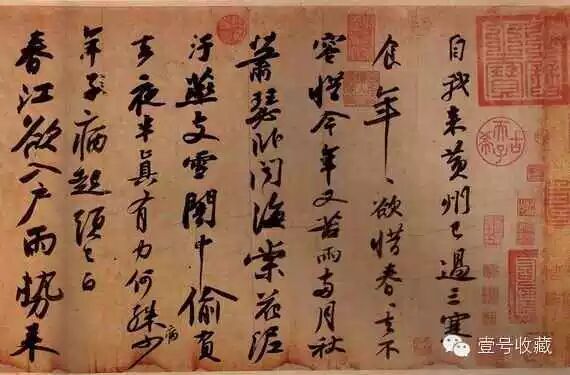 自我来黄州已過三寒
食年〻欲惜春〻去不
容惜今年又苦雨兩月秋
蕭瑟卧聞海棠花泥
汙燕支雪闇中偷負
去夜半真有力何殊病少
年子病起頭已白
春江欲入户雨勢来
古希天子
壹号收藏